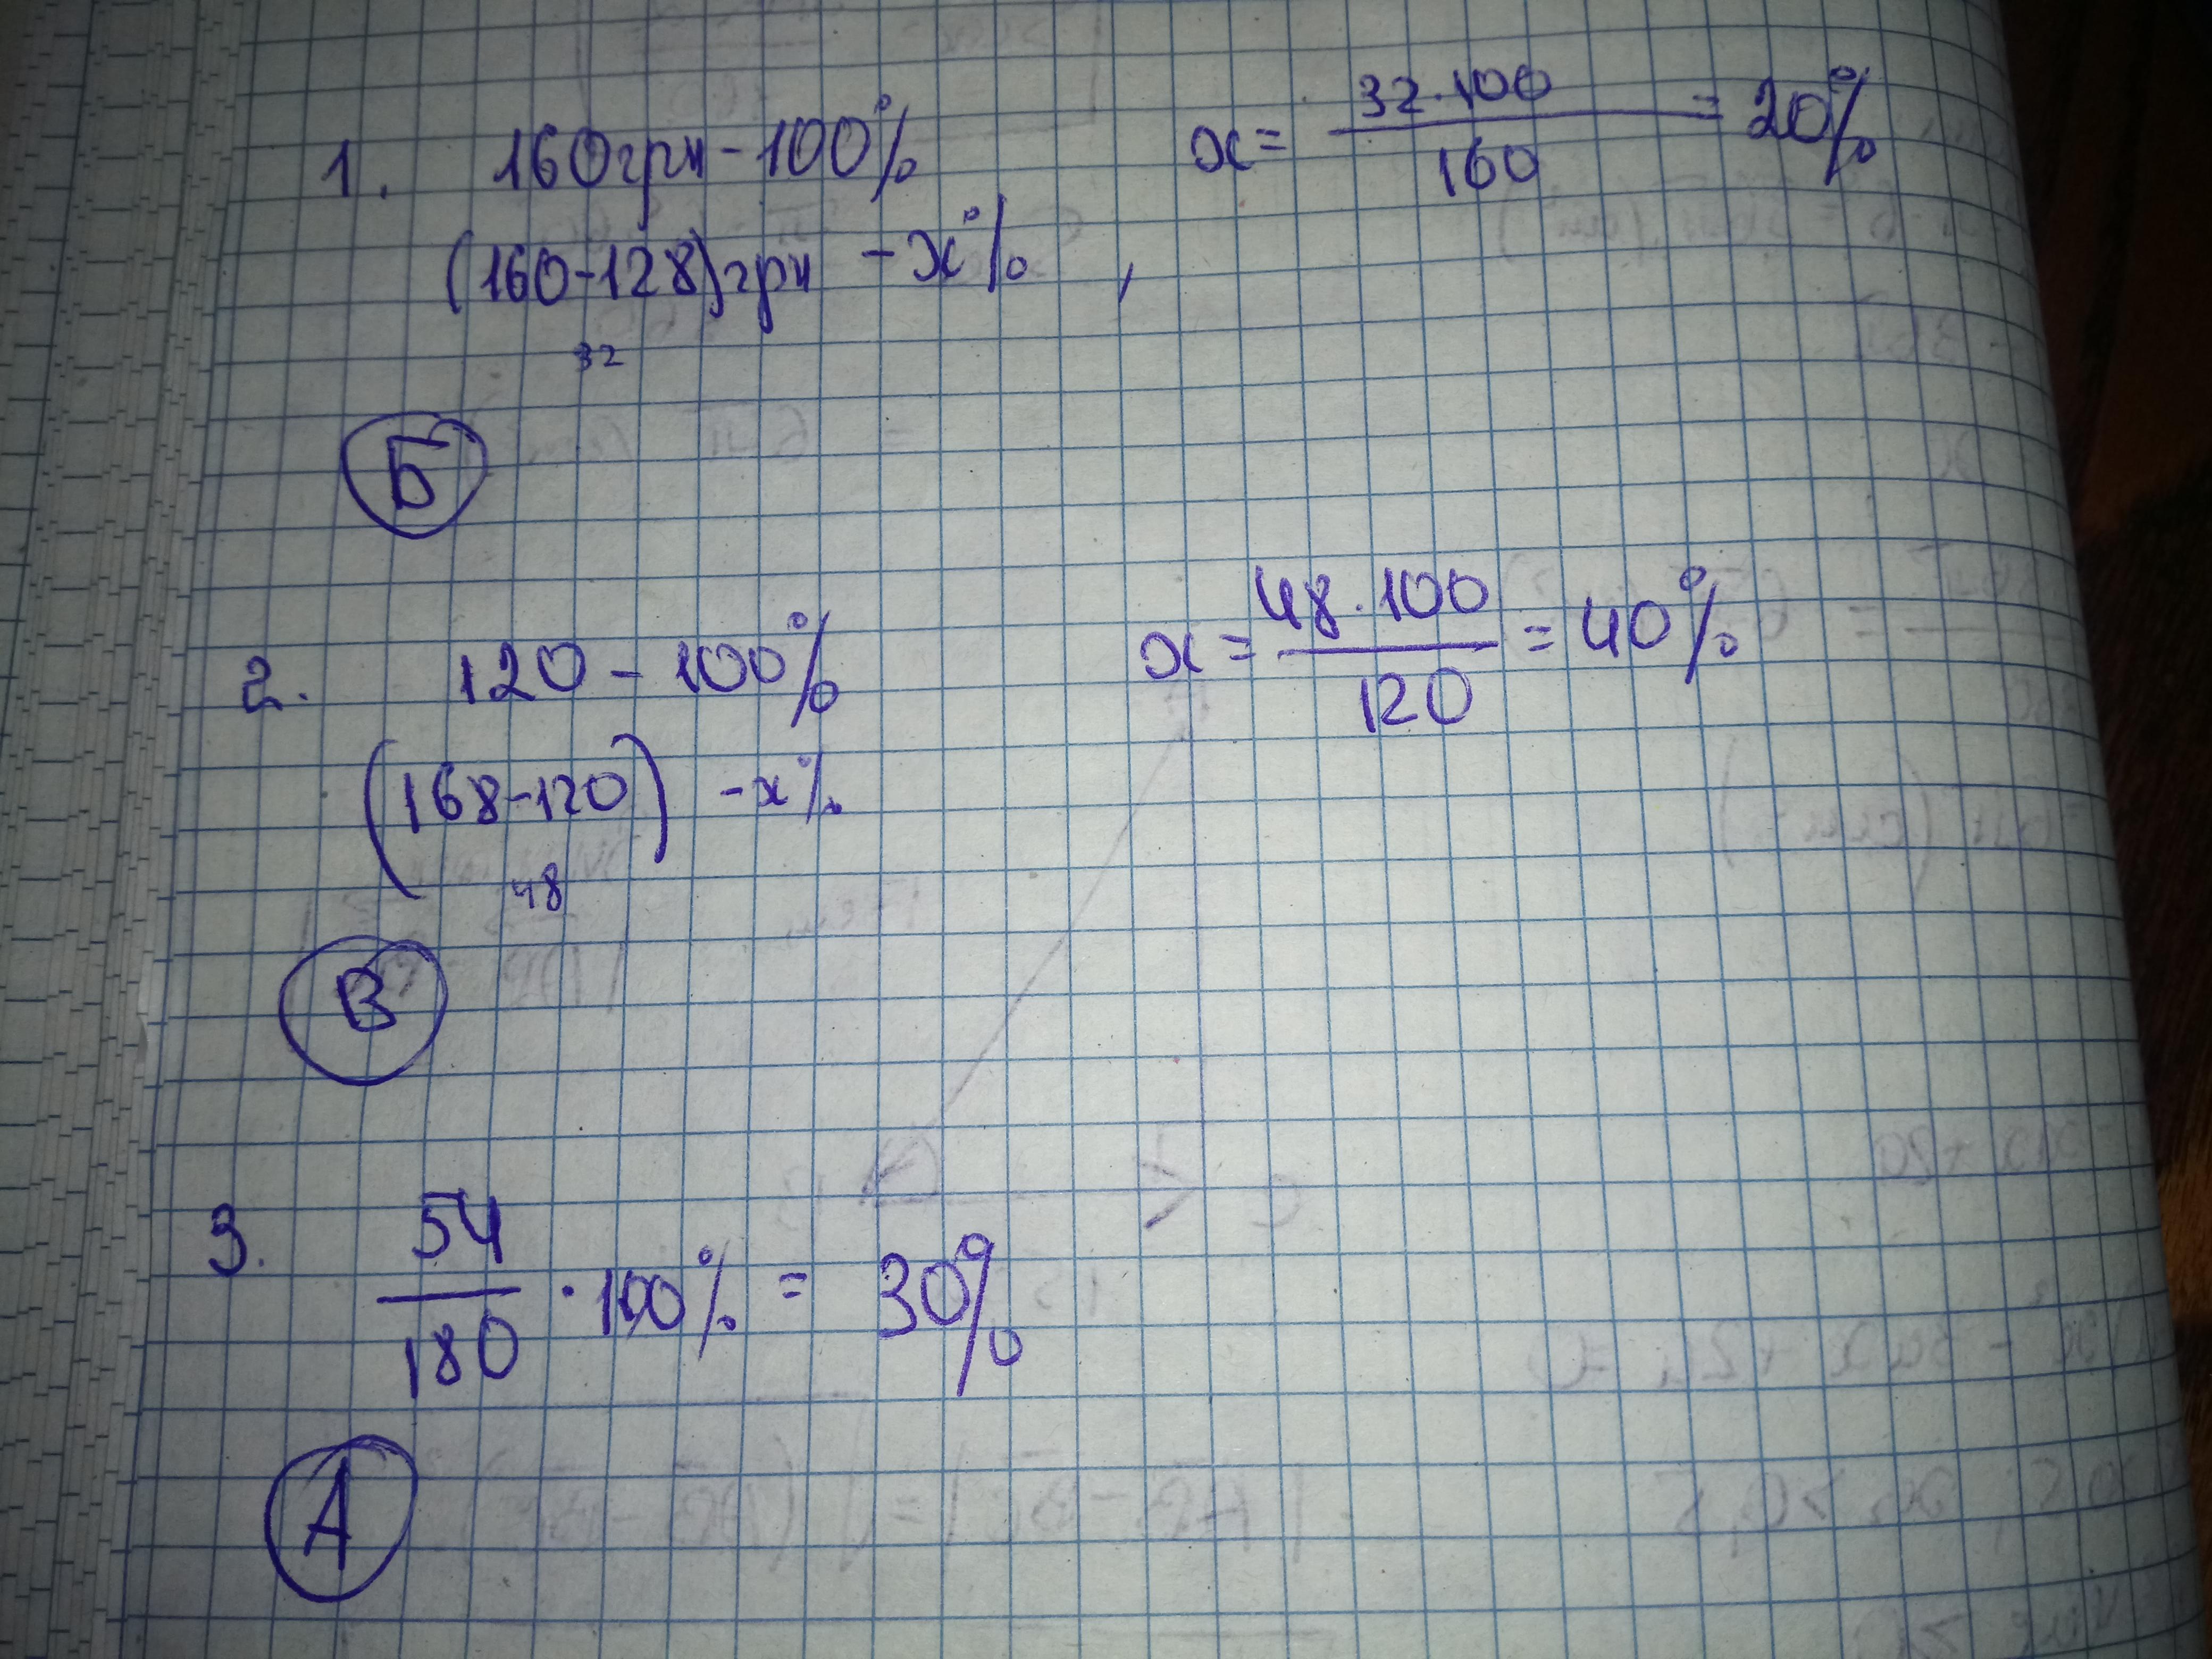 1. 160грн - 100% x = 32·100 / 160 = 20%
(160-128)грн - x% ,
32
Б
2. 120 - 100% x = 48·100 / 120 = 40%
(168-120) - x%
48
В
3. 54 / 180 · 100% = 30%
А